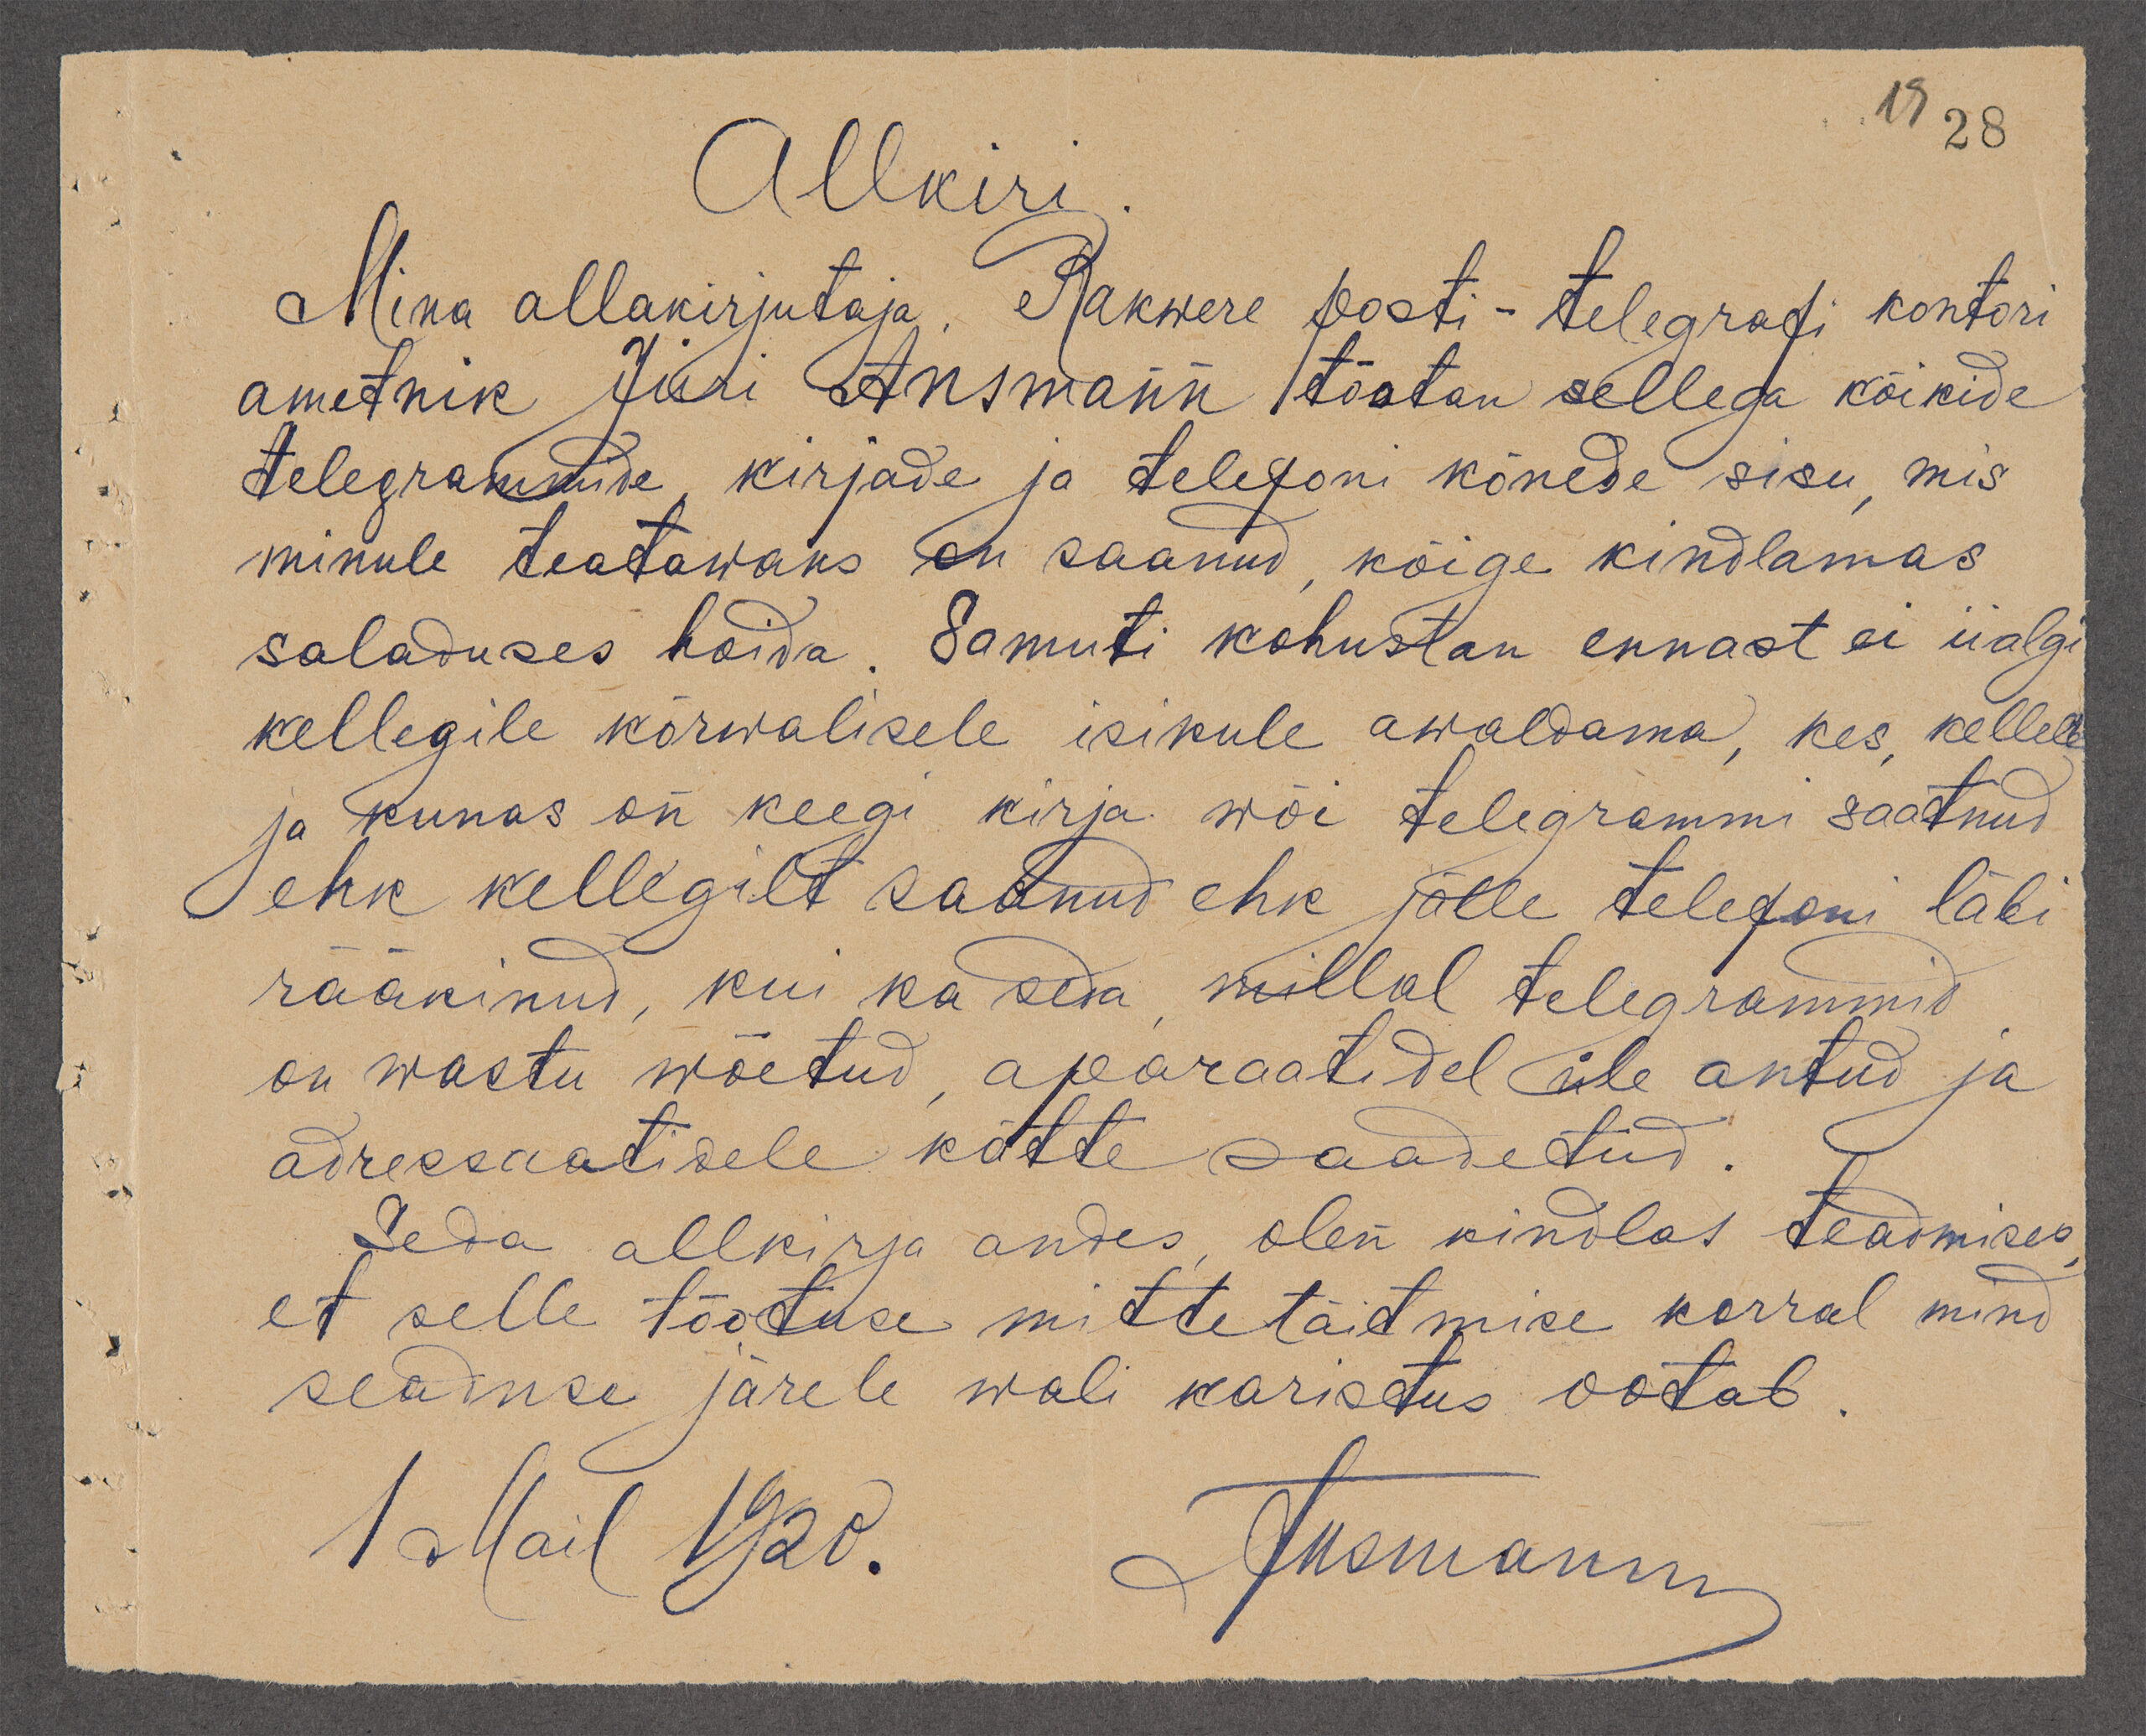 19 28
Allkiri.
Mina allakirjutaja, Rakwere posti-telegrafi kontori
ametnik Jüri Ansmann tõotan sellega kõikide
telegrammide, kirjade ja telefoni kõnede sisu, mis
minule teatawaks on saanud, kõige kindlamas
saladuses hoida. Samuti kohustan ennast ei iialgi
kellegile kõrwalisele isikule awaldama, kes, kellele
ja kunas on keegi kirja wõi telegrammi saatnud
ehk kellegilt saanud ehk jälle telefoni läbi
rääkinud, kui ka seda, millal telegrammid
on wastu wõetud, aparaatidel üle antud ja
adressaatidele kätte saadetud.
Seda allkirja andes, olen kindlas teadmises,
et selle tõotuse mittetäitmise korral mind
seaduse järele wali karistus ootab.
1 Mail 1920. Ansmann